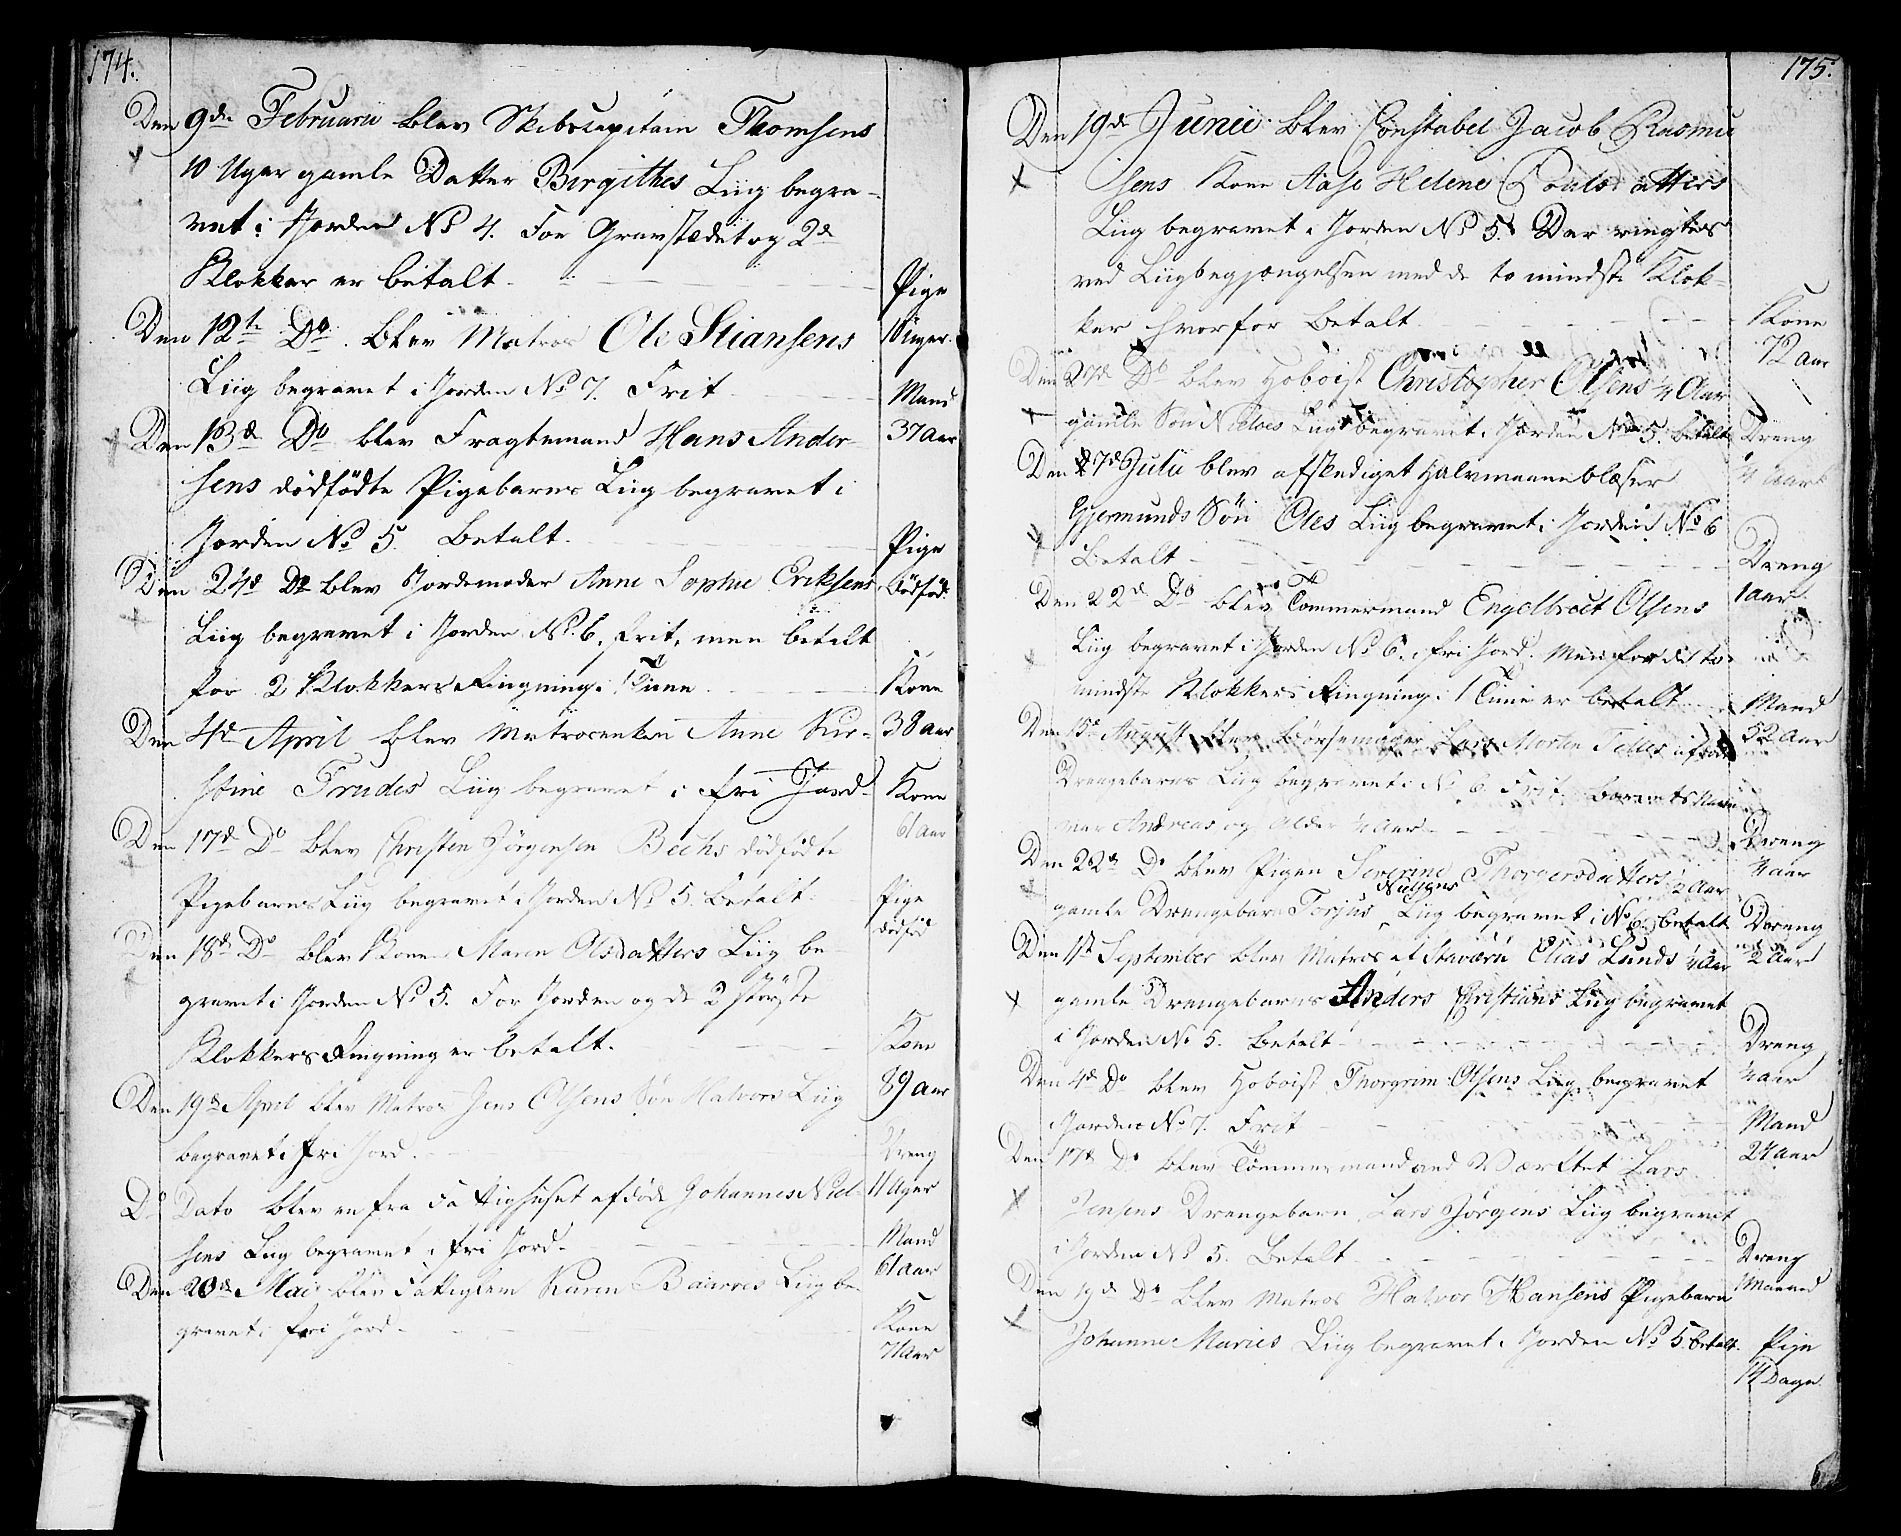 174.
Den 9de Februarii blev Skibscapitain Thomsens
10 Uger gamle Datter Birgithes Liig begra-
vet i Jorden No 4. For Gravstædet og 2de
Klokker er betalt.
Pige
10 Uger.
Den 12te Do. blev Matros Ole Stiansens
Liig begravet i Jorden No 7. Frit
Mand
37 Aar
Den 13de Do blev Fragtemand Hans Ander-
sens dödfödte Pigebarns Liig begravet i
Jorden No 5. Betalt.
Pige
Dödföd.
Den 24de Do blev Jordemoder Anne Sophie Eriksens
Liig begravet i Jorden No 6. frit, men betalt
for 2 Klokkers Ringning i 1 Time
Kone
38 Aar
Den 4de April blev Matrosenken Anne Kir-
stine Trudes Liig begravet i fri Jord.
Kone
61 Aar
Den 17de Do blev Christen Jörgensen Bechs dödfödte
Pigebarns Liig begravet i Jorden No 5. Betalt.
Pige
dödföd
Den 18de Do blev Kone Maren Olsdatters Liig be-
gravet i Jorden No 5. For Jorden og de 2 störste
Klokkers Ringning er betalt.
Kone
89 Aar
Den 19de April blev Matros Jens Olsens Sön Halvors Liig
begravet i fri Jord.
Dreng
11 Uger
Do Dato blev en fra Fattighuset afdöde Johannes Niel-
sens Liig begravet i fri Jord.
Mand
61 Aar
Den 20de Mai blev Fattiglem Karen Liig be-
gravet i fri Jord.
Kone
71 Aar
175.
Den 19de Junii blev Constabel Jacob Rasmu
sens Kone Aase Helene Poulsdatters
Liig begravet i Jorden No 5. Der ringtes
ved Liigbegjængelsen med de to mindste Klok-
ker hvorfor betalt
Kone
72 Aar
Den 27de Do blev Hoboist Christopher Olsens 1/4 Aar
gamle Sön Liig begravet i Jorden No 5. betalt
Dreng
1/4 Aar
Den 7de Julii blev afskediget Halvmaaneblæser
Gjermunds Sön Oles Liig begravet i Jorden No 6
Betalt
Dreng
1 Aar.
Den 22de Do blev Tömmermand Engelbret Olsens
Liig begravet i Jorden No 6. i fri Jord. Men for de to
mindste Klokkers Ringning i 1 Time er betalt
Mand
52 Aar
Den August blev Morten
Drengebarns Liig begravet i No 6. Frit. Barnets Navn
var Andreas og Alder 1/4 Aar
Dreng
1/4 Aar
Den 22de Do blev Pigen Severine Thorersdatters 1/2 Aar
gamle Drengebarn Torjus Nielsens Liig begravet i No 6. betalt
Dreng
1/2 Aar
Den 1ste September blev Matros af Staværn Elias Lunds 1/4 Aar
gamle Drengebarns Anders Christians Liig begravet
i Jorden No 5. Betalt
Dreng
1/4 Aar
Den 4de Do blev Hoboist Thorgrim Olsens Liig begravet
i Jorden No 7. Frit
Mand
24 Aar
Den 17de Do blev Tömmermand ved Værftet Lars
Jensens Drengebarn Lars Jörgens Liig begravet
i Jorden No 5. Betalt
Dreng
1 Maaned
Den 19de Do blev Matros Halvor Hansens Pigebarn
Johanne Maries Liig begravet i Jorden No 5. betalt.
Pige
14 Dage.